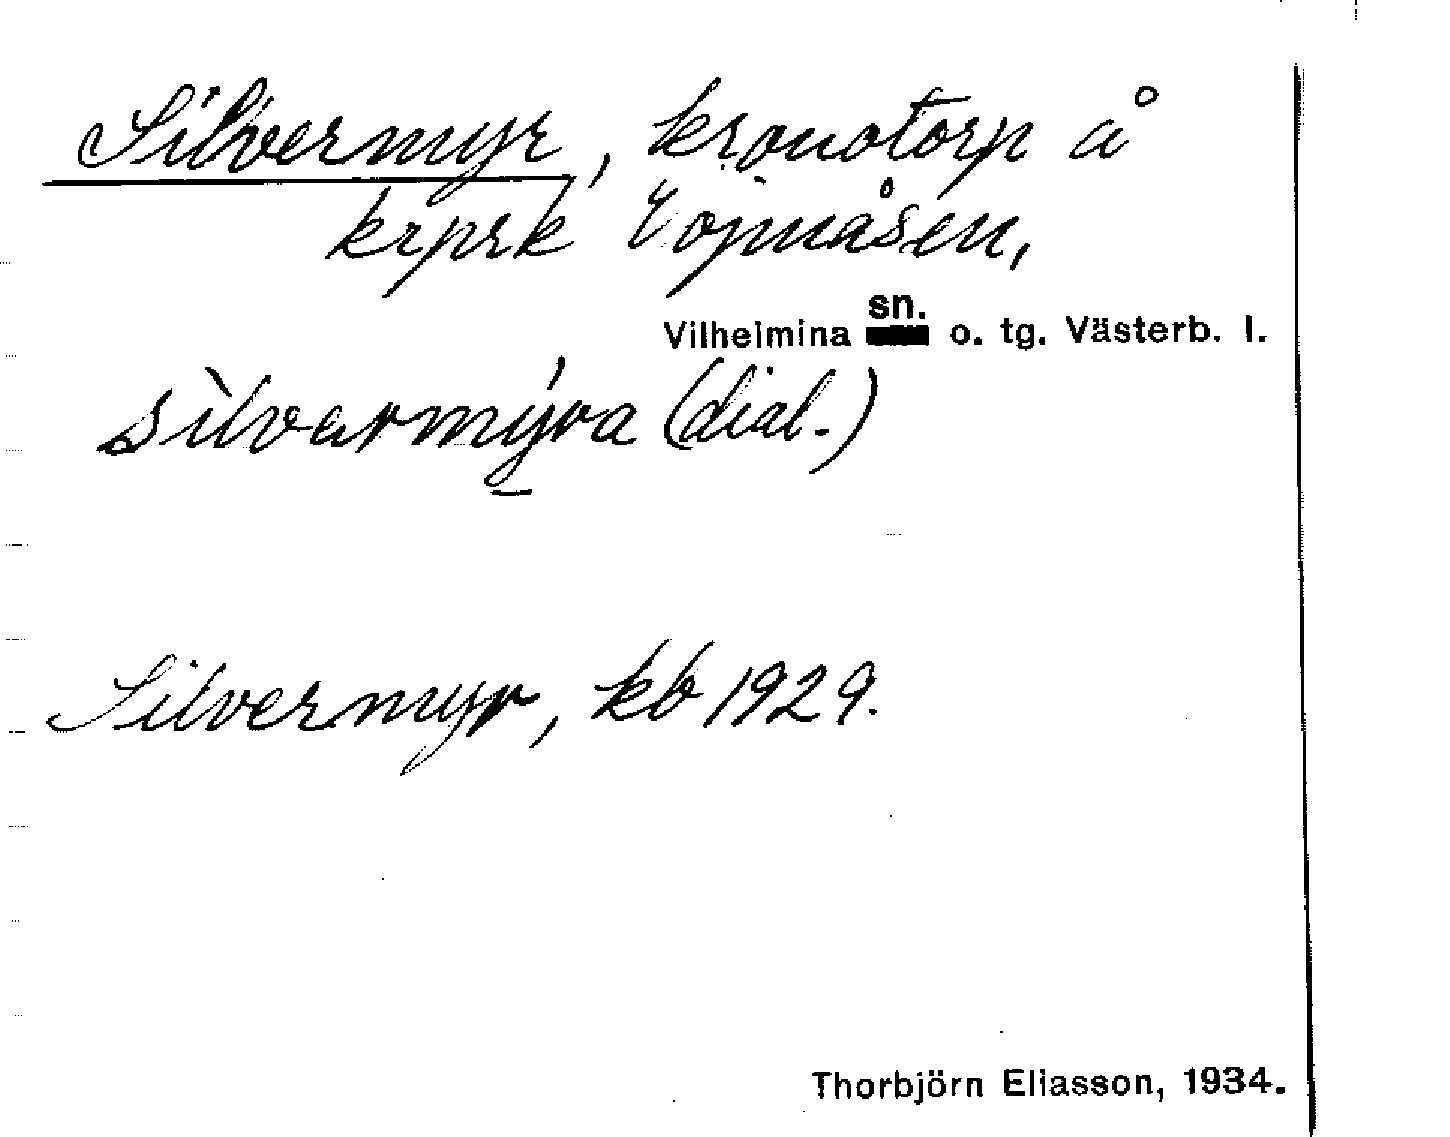 Silvermyr, kronotorp å
krprk Vojmåsen,
Vilhelmina sn. o. tg. Västerb. l.
sìlvarmýra (dial.)
Silvermyr, kb 1929.
Thorbjörn Eliasson, 1934.